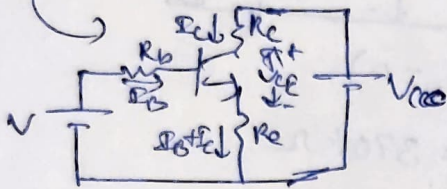 I_C↓ R_C
R_b
I_B
+
V_CE
-
V_CC
V
I_B+I_C↓ R_e
370